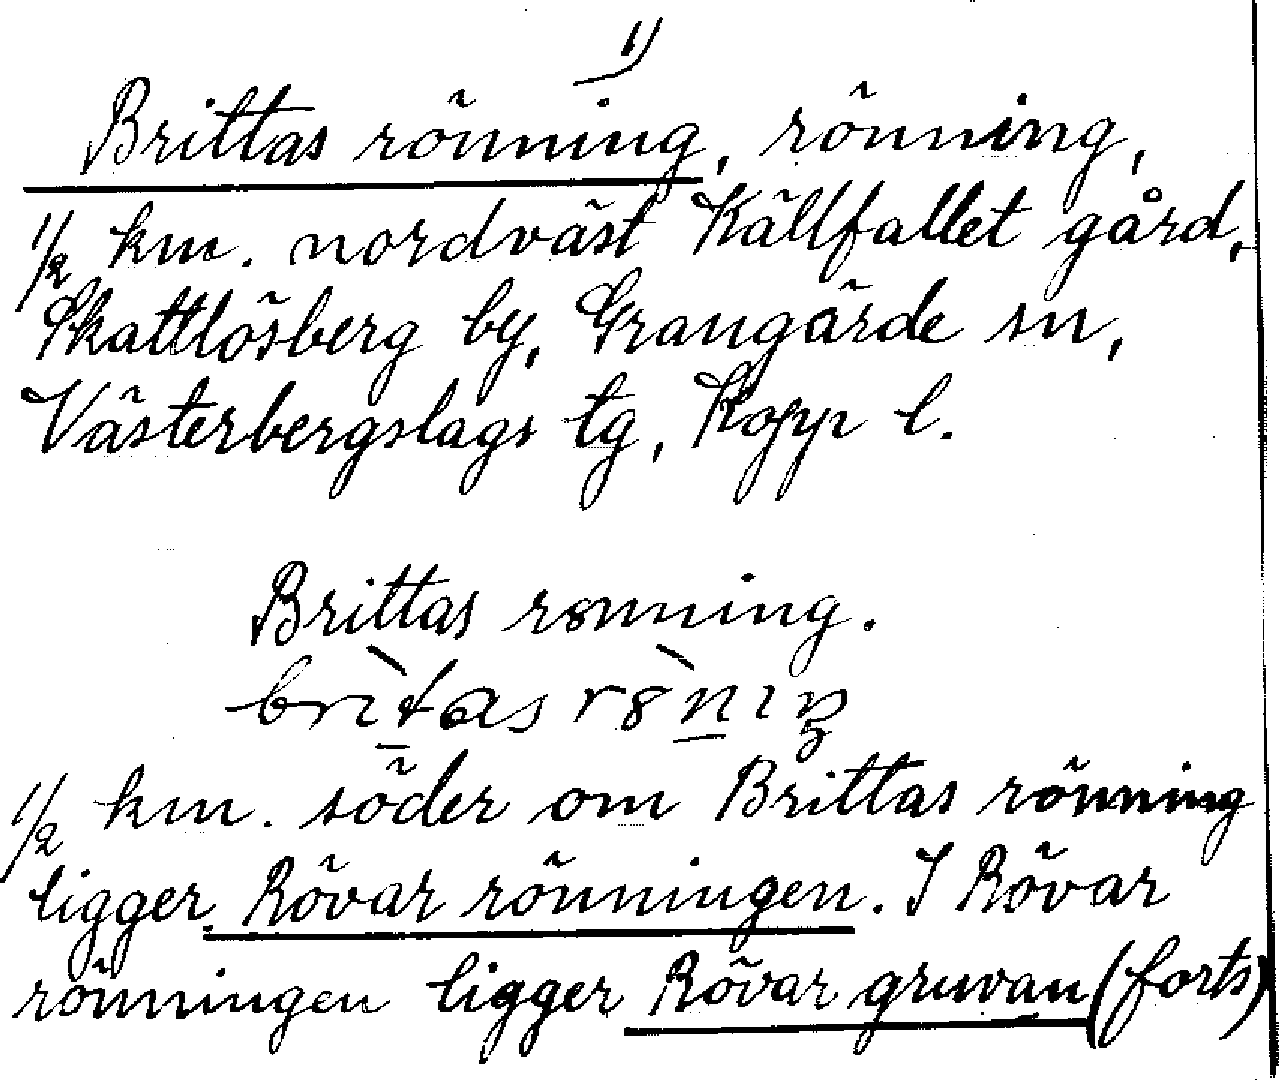 1)
Brittas rönning, rönning,
1/2 km. nordväst Källfallet gård,
Skattlösberg by, Grangärde sn,
Västerbergslags tg, Kopp l.
Brittas rönning.
britas r8nıŋ
1/2 km. söder om Brittas rönning
ligger Rövar rönningen. I Rövar
rönningen ligger Rövar gruvan (forts)